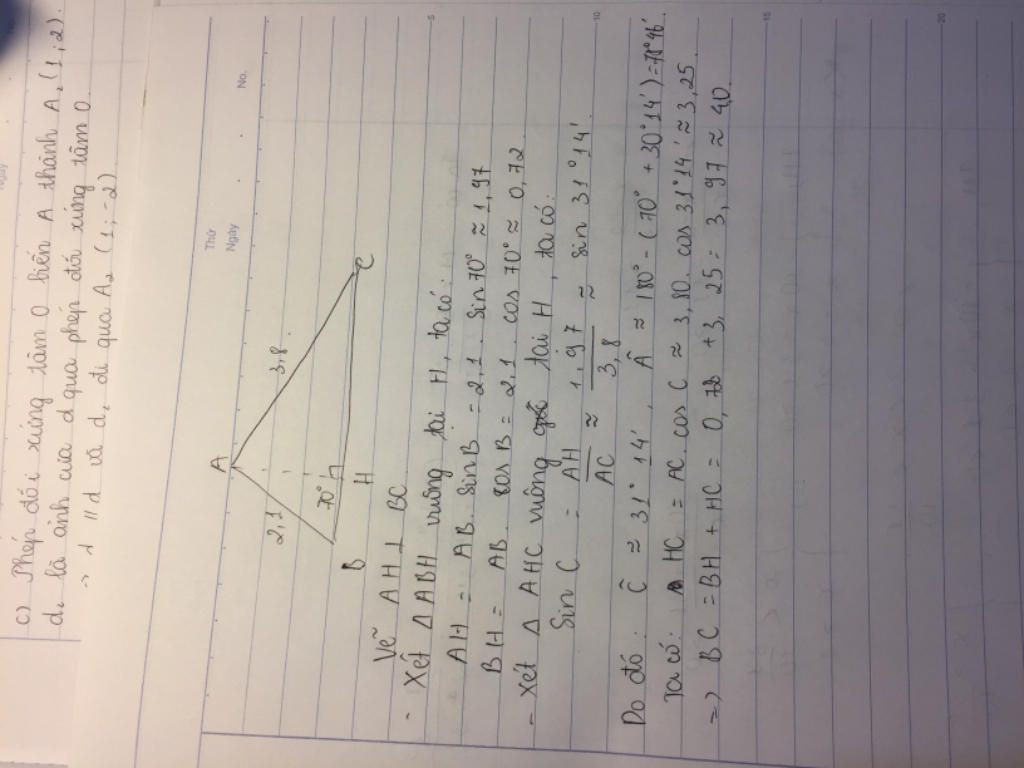 Ngày
c) Phép đối xứng tâm O biến A thành A₂ (1 ; 2).
d₂ là ảnh của d qua phép đối xứng tâm O
d₂ đi qua A₂ (1 ; -2)
Thứ
Ngày
No.
A
2,1
3,8
70°
B
H
C
Vẽ AH ⊥ BC
- Xét Δ ABH vuông tại H, ta có:
AH = AB. sin B = 2,1. sin 70° ≈ 1,97
BH = AB. cos B = 2,1. cos 70° ≈ 0,72
- Xét Δ AHC vuông tại H, ta có:
Sin C = AH/AC ≈ 1,97/3,8 ≈ sin 31°14'
Do đó: Ĉ ≈ 31°14', Â ≈ 180° - (70° + 30°14') = 78°46'
Ta có: HC = AC. cos C ≈ 3,80. cos 31°14' ≈ 3,25
=> BC = BH + HC = 0,72 + 3,25 = 3,97 ≈ 4,0
5
10
15
20